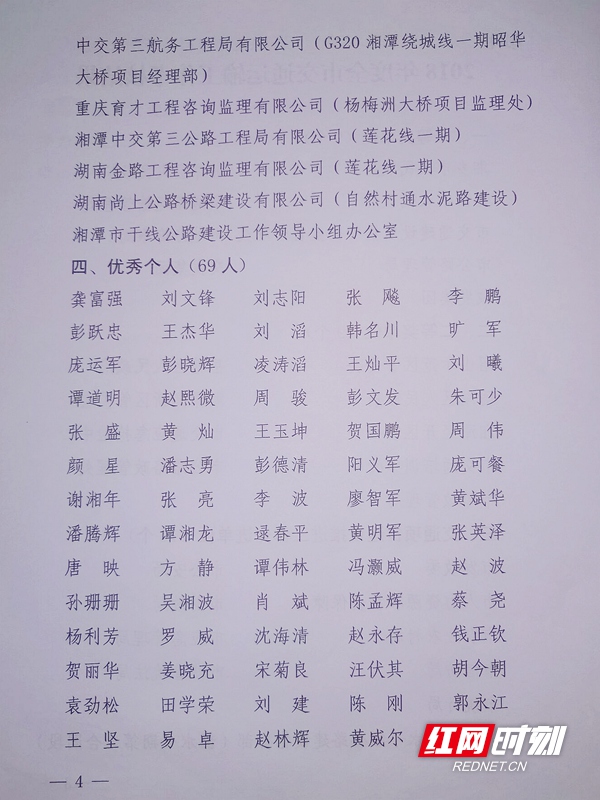 中交第三航务工程局有限公司（G320湘潭绕城线一期昭华
大桥项目经理部）
重庆育才工程咨询监理有限公司（杨梅洲大桥项目监理处）
湘潭中交第三公路工程局有限公司（莲花线一期）
湖南金路工程咨询监理有限公司（莲花线一期）
湖南尚上公路桥梁建设有限公司（自然村通水泥路建设）
湘潭市干线公路建设工作领导小组办公室
四、优秀个人（69人）
龚富强 刘文锋 刘志阳 张 飚 李 鹏
彭跃忠 王杰华 刘 滔 韩名川 旷 军
庞运军 彭晓辉 凌涛滔 王灿平 刘 曦
谭道明 赵熙微 周 骏 彭文发 朱可少
张 盛 黄 灿 王玉坤 贺国鹏 周 伟
颜 星 潘志勇 彭德清 阳义军 庞可餐
谢湘年 张 亮 李 波 廖智军 黄斌华
潘腾辉 谭湘龙 逯春平 黄明军 张英泽
唐 映 方 静 谭伟林 冯灏威 赵 波
孙珊珊 吴湘波 肖 斌 陈孟辉 蔡 尧
杨利芳 罗 威 沈海清 赵永存 钱正钦
贺丽华 姜晓充 宋菊良 汪伏其 胡今朝
袁劲松 田学荣 刘 建 陈 刚 郭永江
王 坚 易 卓 赵林辉 黄威尔
— 4 —
红网时刻
REDNET.CN